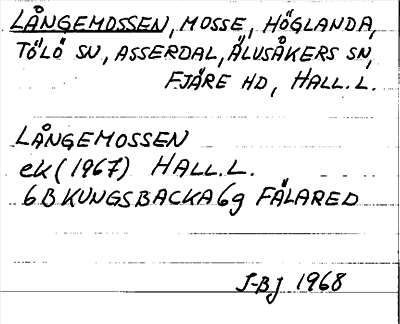 LÅNGEMOSSEN, MOSSE, HÖGLANDA,
TÖLÖ SN, ASSERDAL, ÄLVSÅKERS SN,
FJÄRE HD, HALL.L.
LÅNGEMOSSEN
ek (1967) HALL.L.
6B KUNGSBACKA 6g FÄLARED
J-BJ 1968